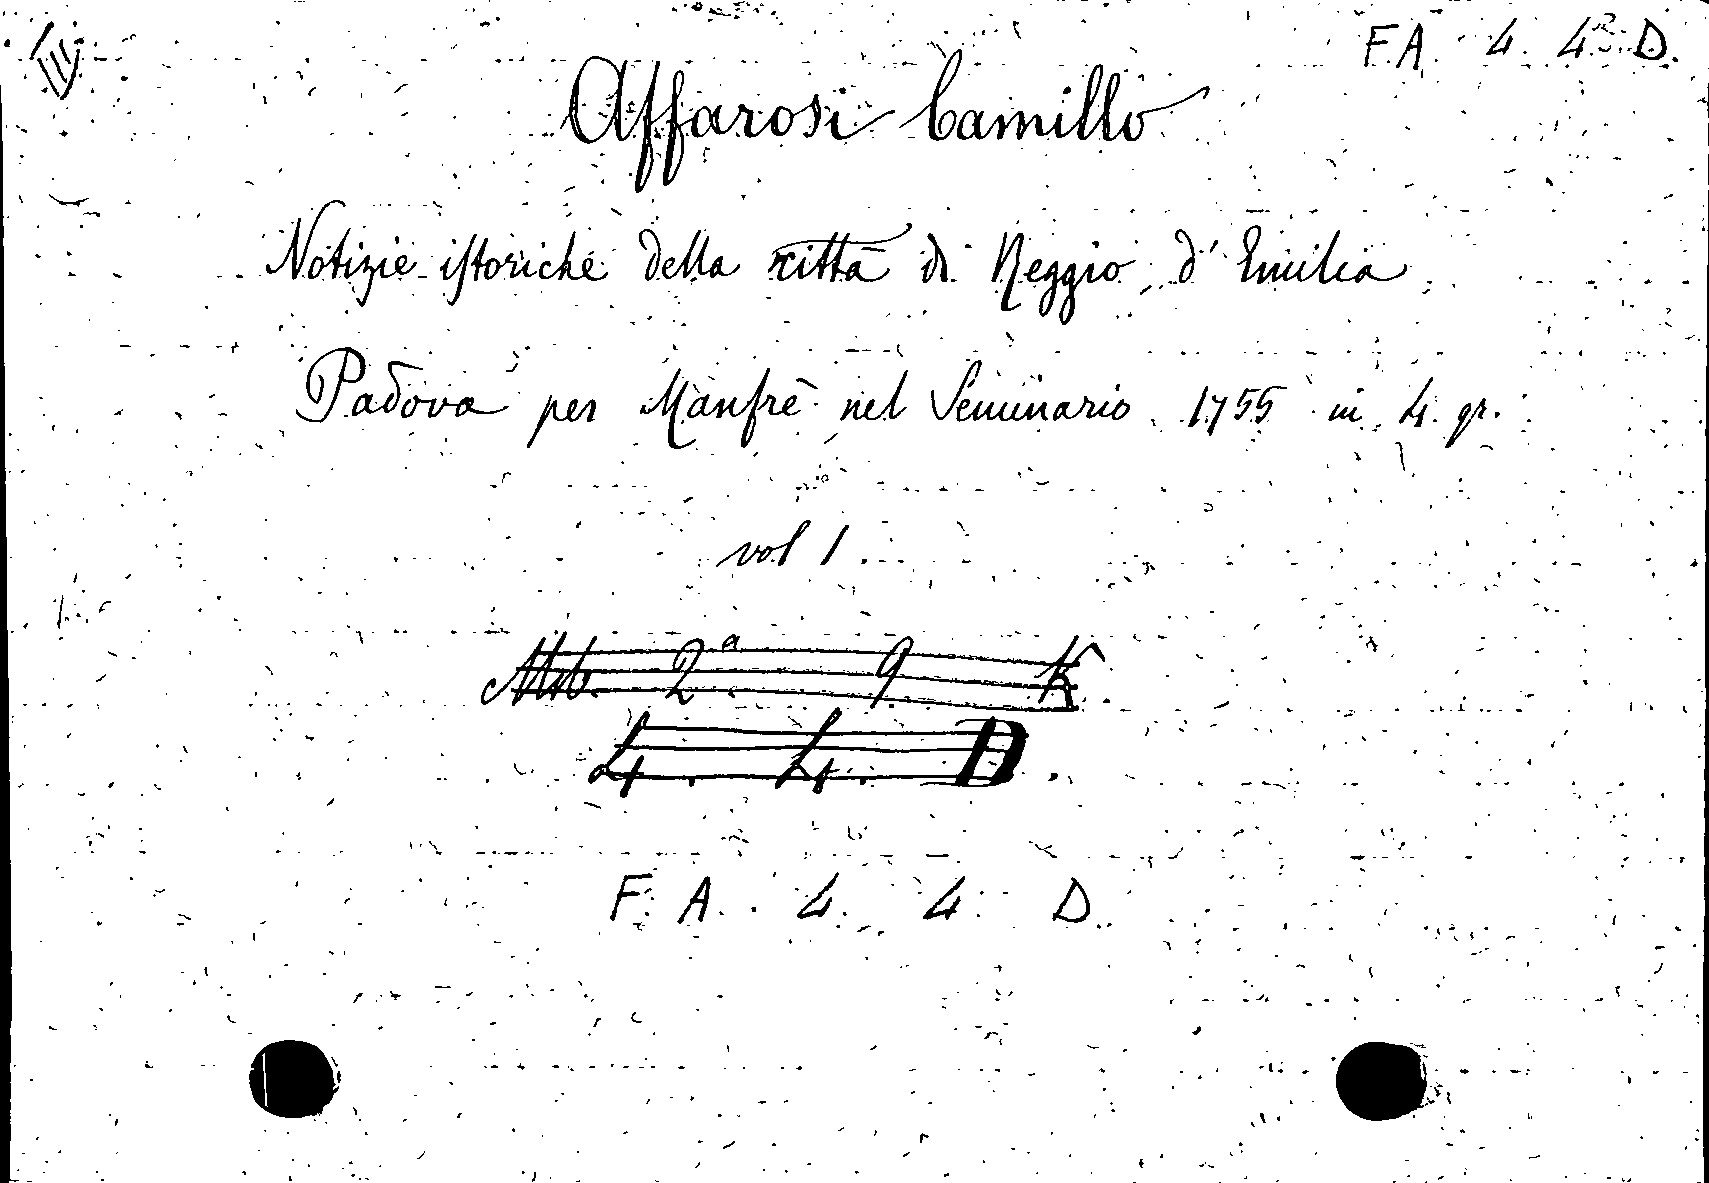 F. A. 4. 4. D.
Affarosi Camillo
Notizie istoriche della città di Reggio d' Emilia
Padova per Manfrè nel Seminario 1755 in 4. gr.
vol 1.
2ª 9 K
4. 4. D.
F. A. 4. 4. D.